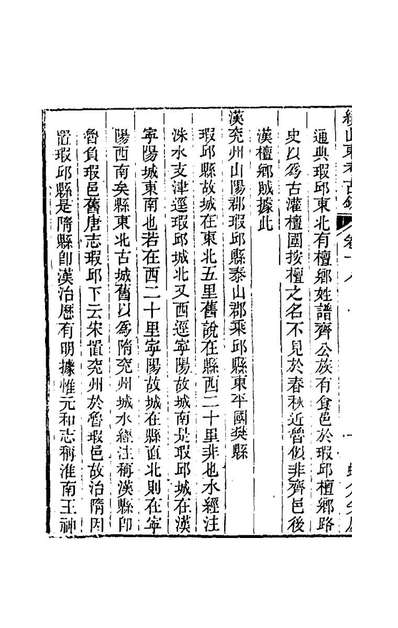 續山東考古錄 卷十八
通典瑕邱東北有檀鄉姓譜齊公族有食邑於瑕邱檀鄉路
史以爲古灌檀國按檀之名不見於春秋近魯似非齊邑後
漢檀鄉賊據此
漢兖州山陽郡瑕邱縣泰山郡乘邱縣東平國樊縣
瑕邱縣故城在東北五里舊說在縣西二十里非也水經注
洙水支津逕瑕邱城北又西逕寧陽故城南是瑕邱城在漢
寧陽城東南也若在西二十里寧陽故城在縣直北則在寧
陽西南矣縣東北古城舊以爲隋兖州城水經注稱漢縣卽
魯負瑕邑舊唐志瑕邱下云宋置兖州於魯瑕邑故治隋因
置瑕邱縣是隋縣卽漢治歷有明據惟元和志稱淮南王神